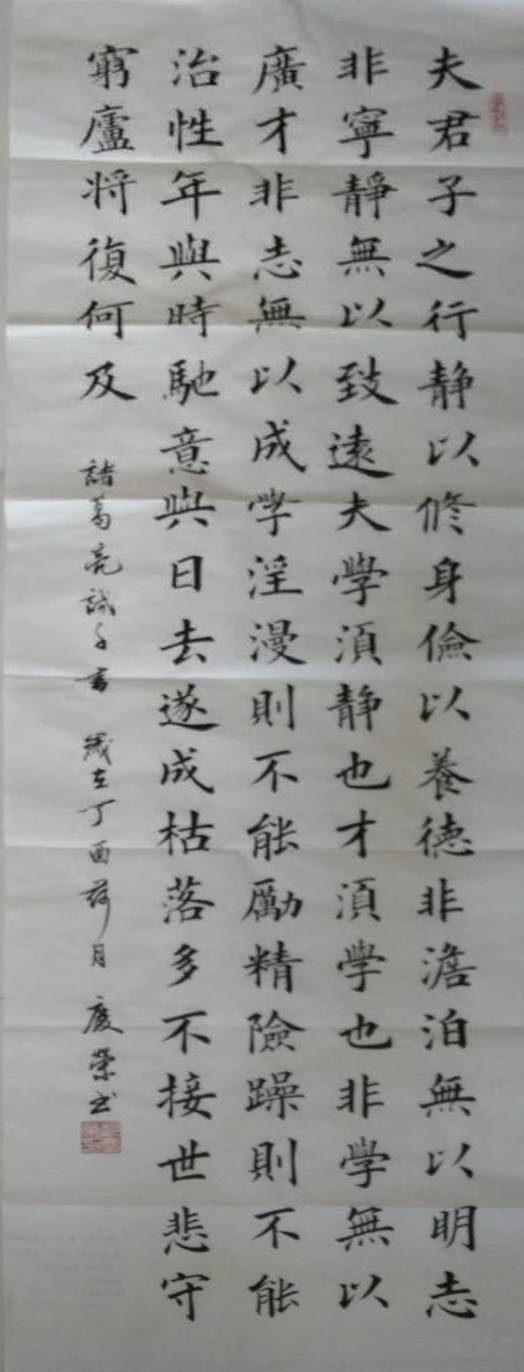 夫君子之行静以修身儉以養德非澹泊無以明志
非寧靜無以致遠夫學須静也才須學也非學無以
廣才非志無以成学淫漫則不能勵精險躁則不能
治性年與時馳意與日去遂成枯落多不接世悲守
窮廬將復何及
諸葛亮誡子書 歲在丁酉荷月 慶榮书